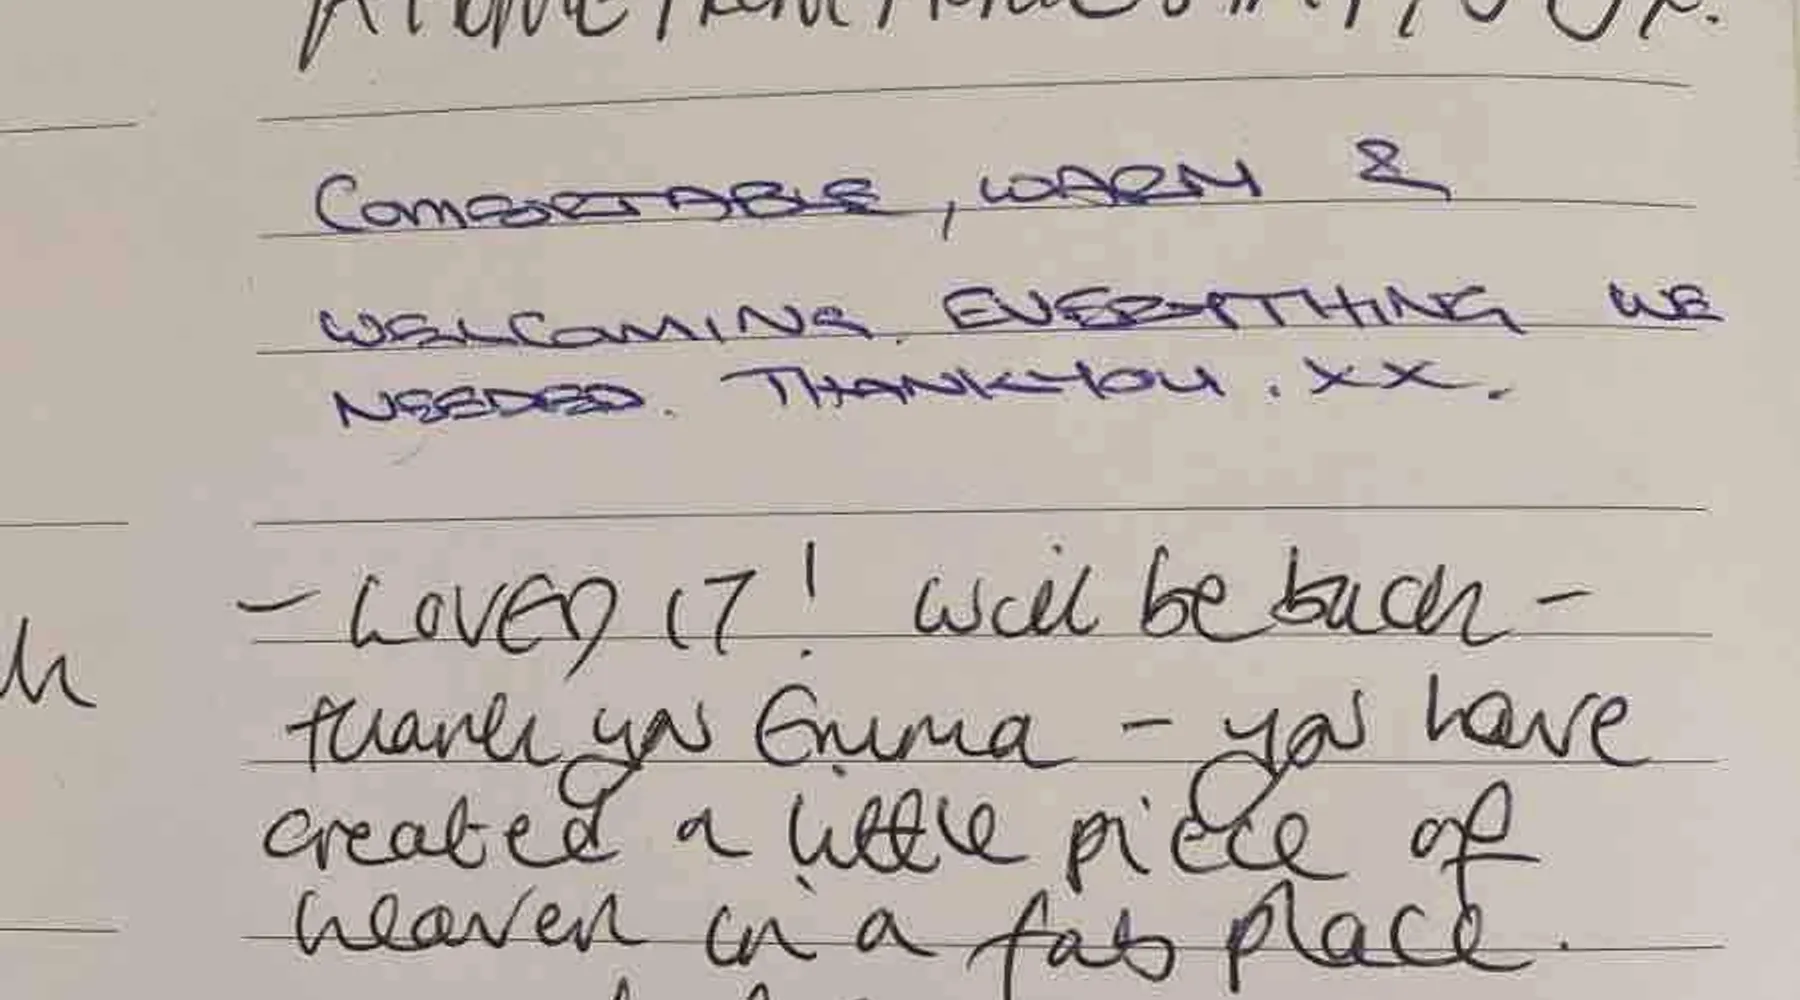 COMFORTABLE, WARM &
WELCOMING. EVERYTHING WE
NEEDED. THANKYOU. XX.
- LOVED IT! Will be back -
thank you Emma - you have
created a little piece of
heaven in a fab place.